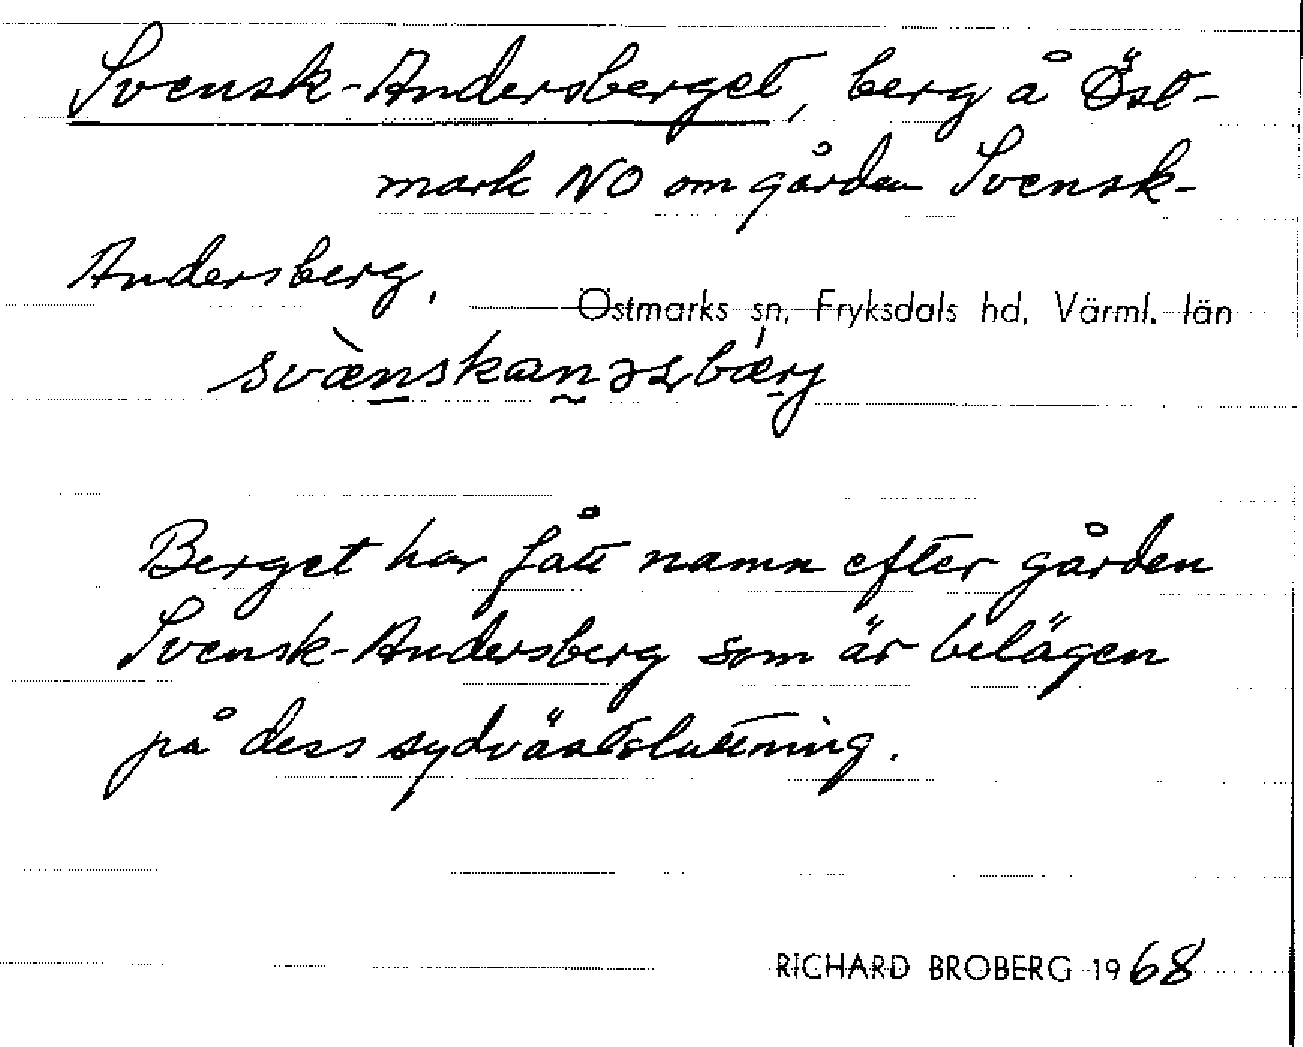 Svensk-Andersberget, berg å Öst-
mark NO om gården Svensk-
Andersberg.
Östmarks sn, Fryksdals hd, Värml. län
svæ̀nskanəsbærj
Berget har fått namn efter gården
Svensk-Andersberg som är belägen
på dess sydvästsluttning.
RICHARD BROBERG 1968